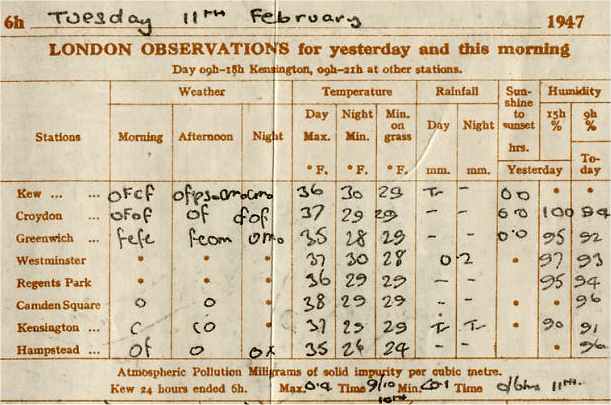 6h Tuesday 11TH February 1947
LONDON OBSERVATIONS for yesterday and this morning
Day 09h-18h Kensington, 09h-21h at other stations.
Stations Weather Temperature Rainfall Sunshine to sunset hrs. Humidity
Morning Afternoon Night Day Max. °F. Night Min. °F. Min. on grass °F. Day mm. Night mm. 15h % 9h %
Yesterday To-day
Kew ... ... 36 30 29 Tr - 0.0 • •
Croydon ... ofof of 37 29 29 - - 0.0 100 94
Greenwich ... fefe 35 28 29 - - 0.0 95 92
Westminster • • • 37 30 28 0.2 • 97 93
Regents Park • • • 36 29 29 - - • 95 94
Camden Square o o • 38 29 29 - - • • 96
Kensington ... c co • 37 29 29 Tr Tr • 90 91
Hampstead ... of o ox 35 26 24 - - • • 96
Atmospheric Pollution Miligrams of solid impurity per cubic metre.
Kew 24 hours ended 6h. Max. 0.4 Time 9/10 10TH Min. <0.1 Time 11TH